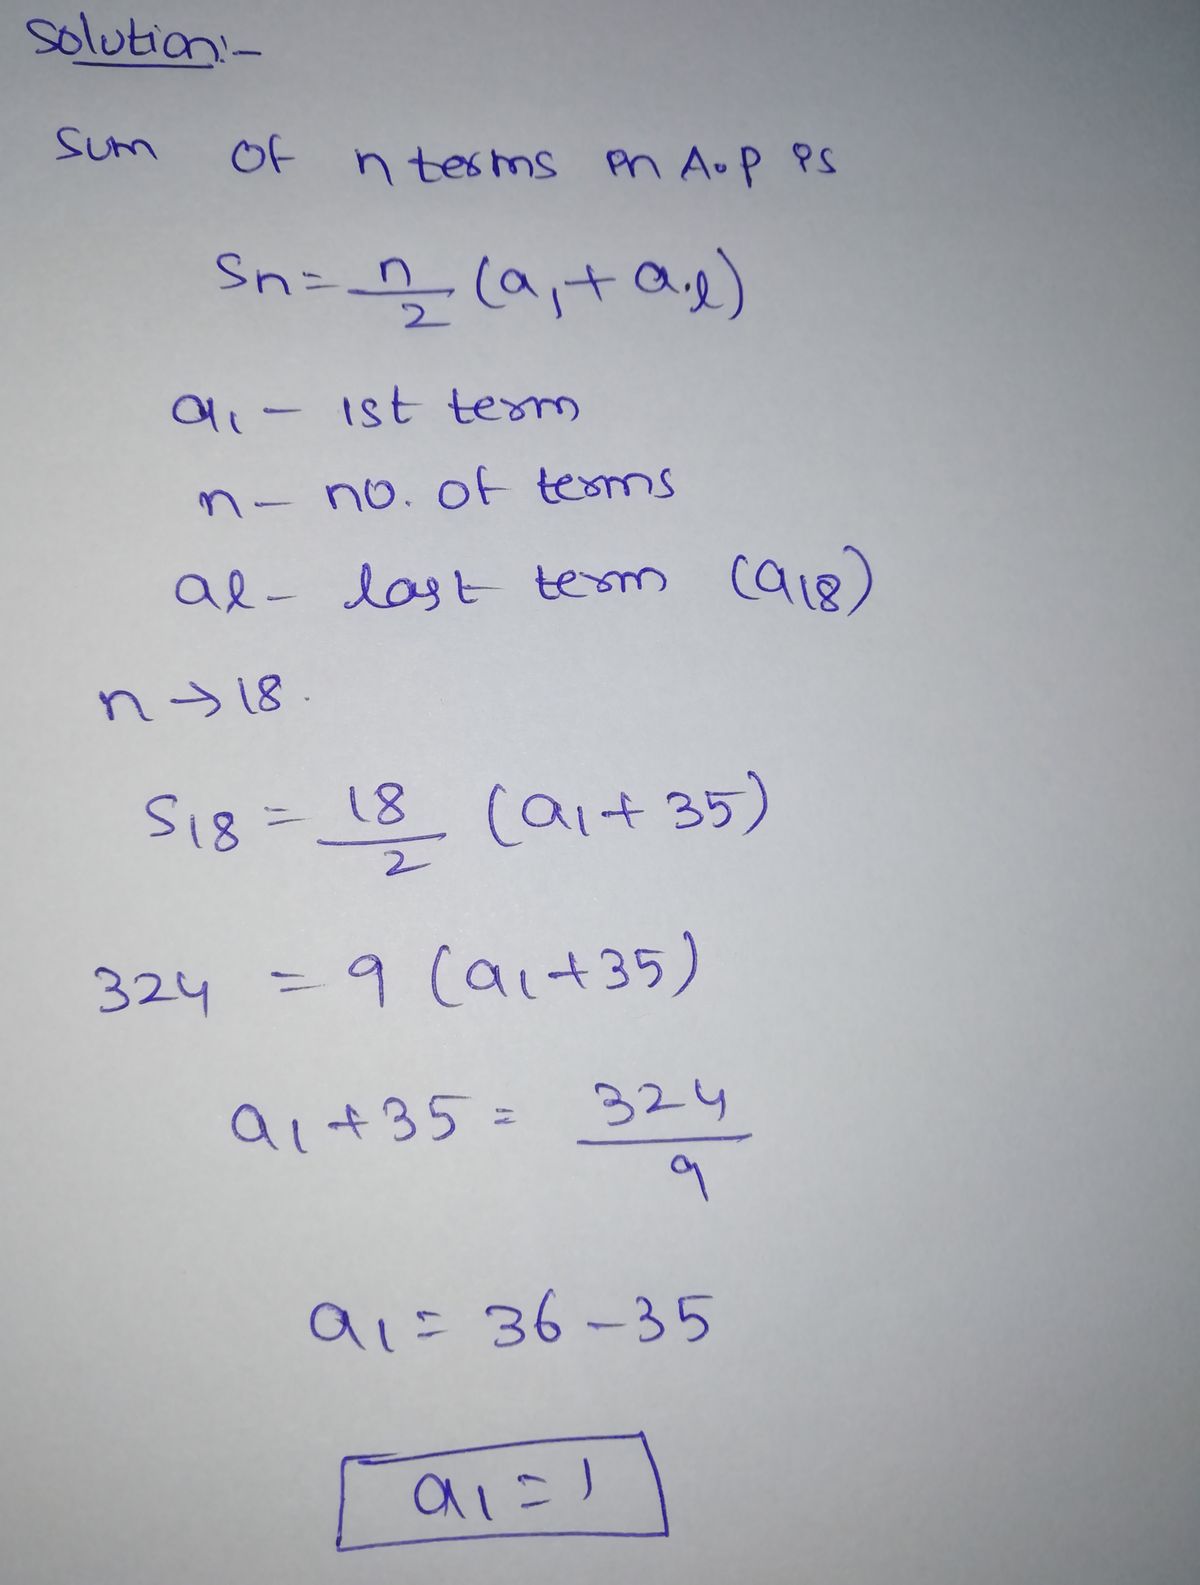 Solution:-
Sum of n terms in A.P is
Sn = n/2 (a₁ + a.l)
a₁ - 1st term
n - no. of terms
al - last term (a₁₈)
n → 18.
S₁₈ = 18/2 (a₁ + 35)
324 = 9 (a₁ + 35)
a₁ + 35 = 324/9
a₁ = 36 - 35
a₁ = 1